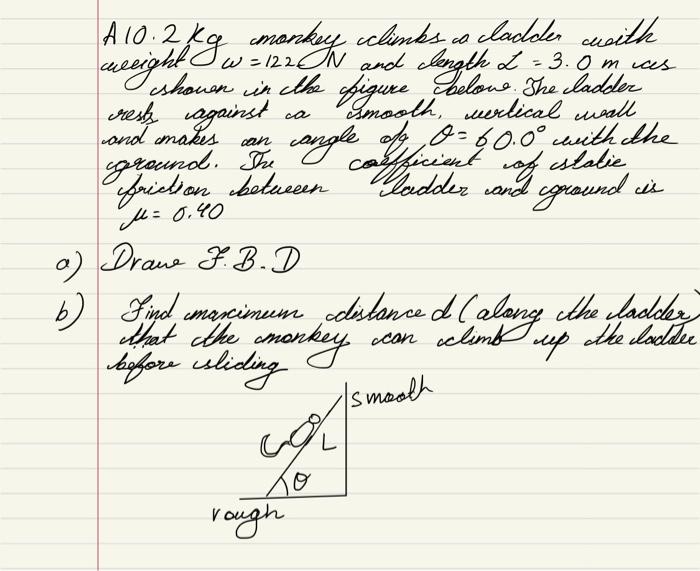 A 10.2 Kg monkey climbs a ladder with
weight w = 122 N and length L = 3.0 m as
shown in the figure below. The ladder
rests against a smooth, vertical wall
and makes an angle of θ = 60.0° with the
ground. The coefficient of static
friction between ladder and ground is
μ = 0.40
a) Draw F.B.D
b) Find maximum distance d (along the ladder)
that the monkey can climb up the ladder
before sliding
smooth
L
θ
rough